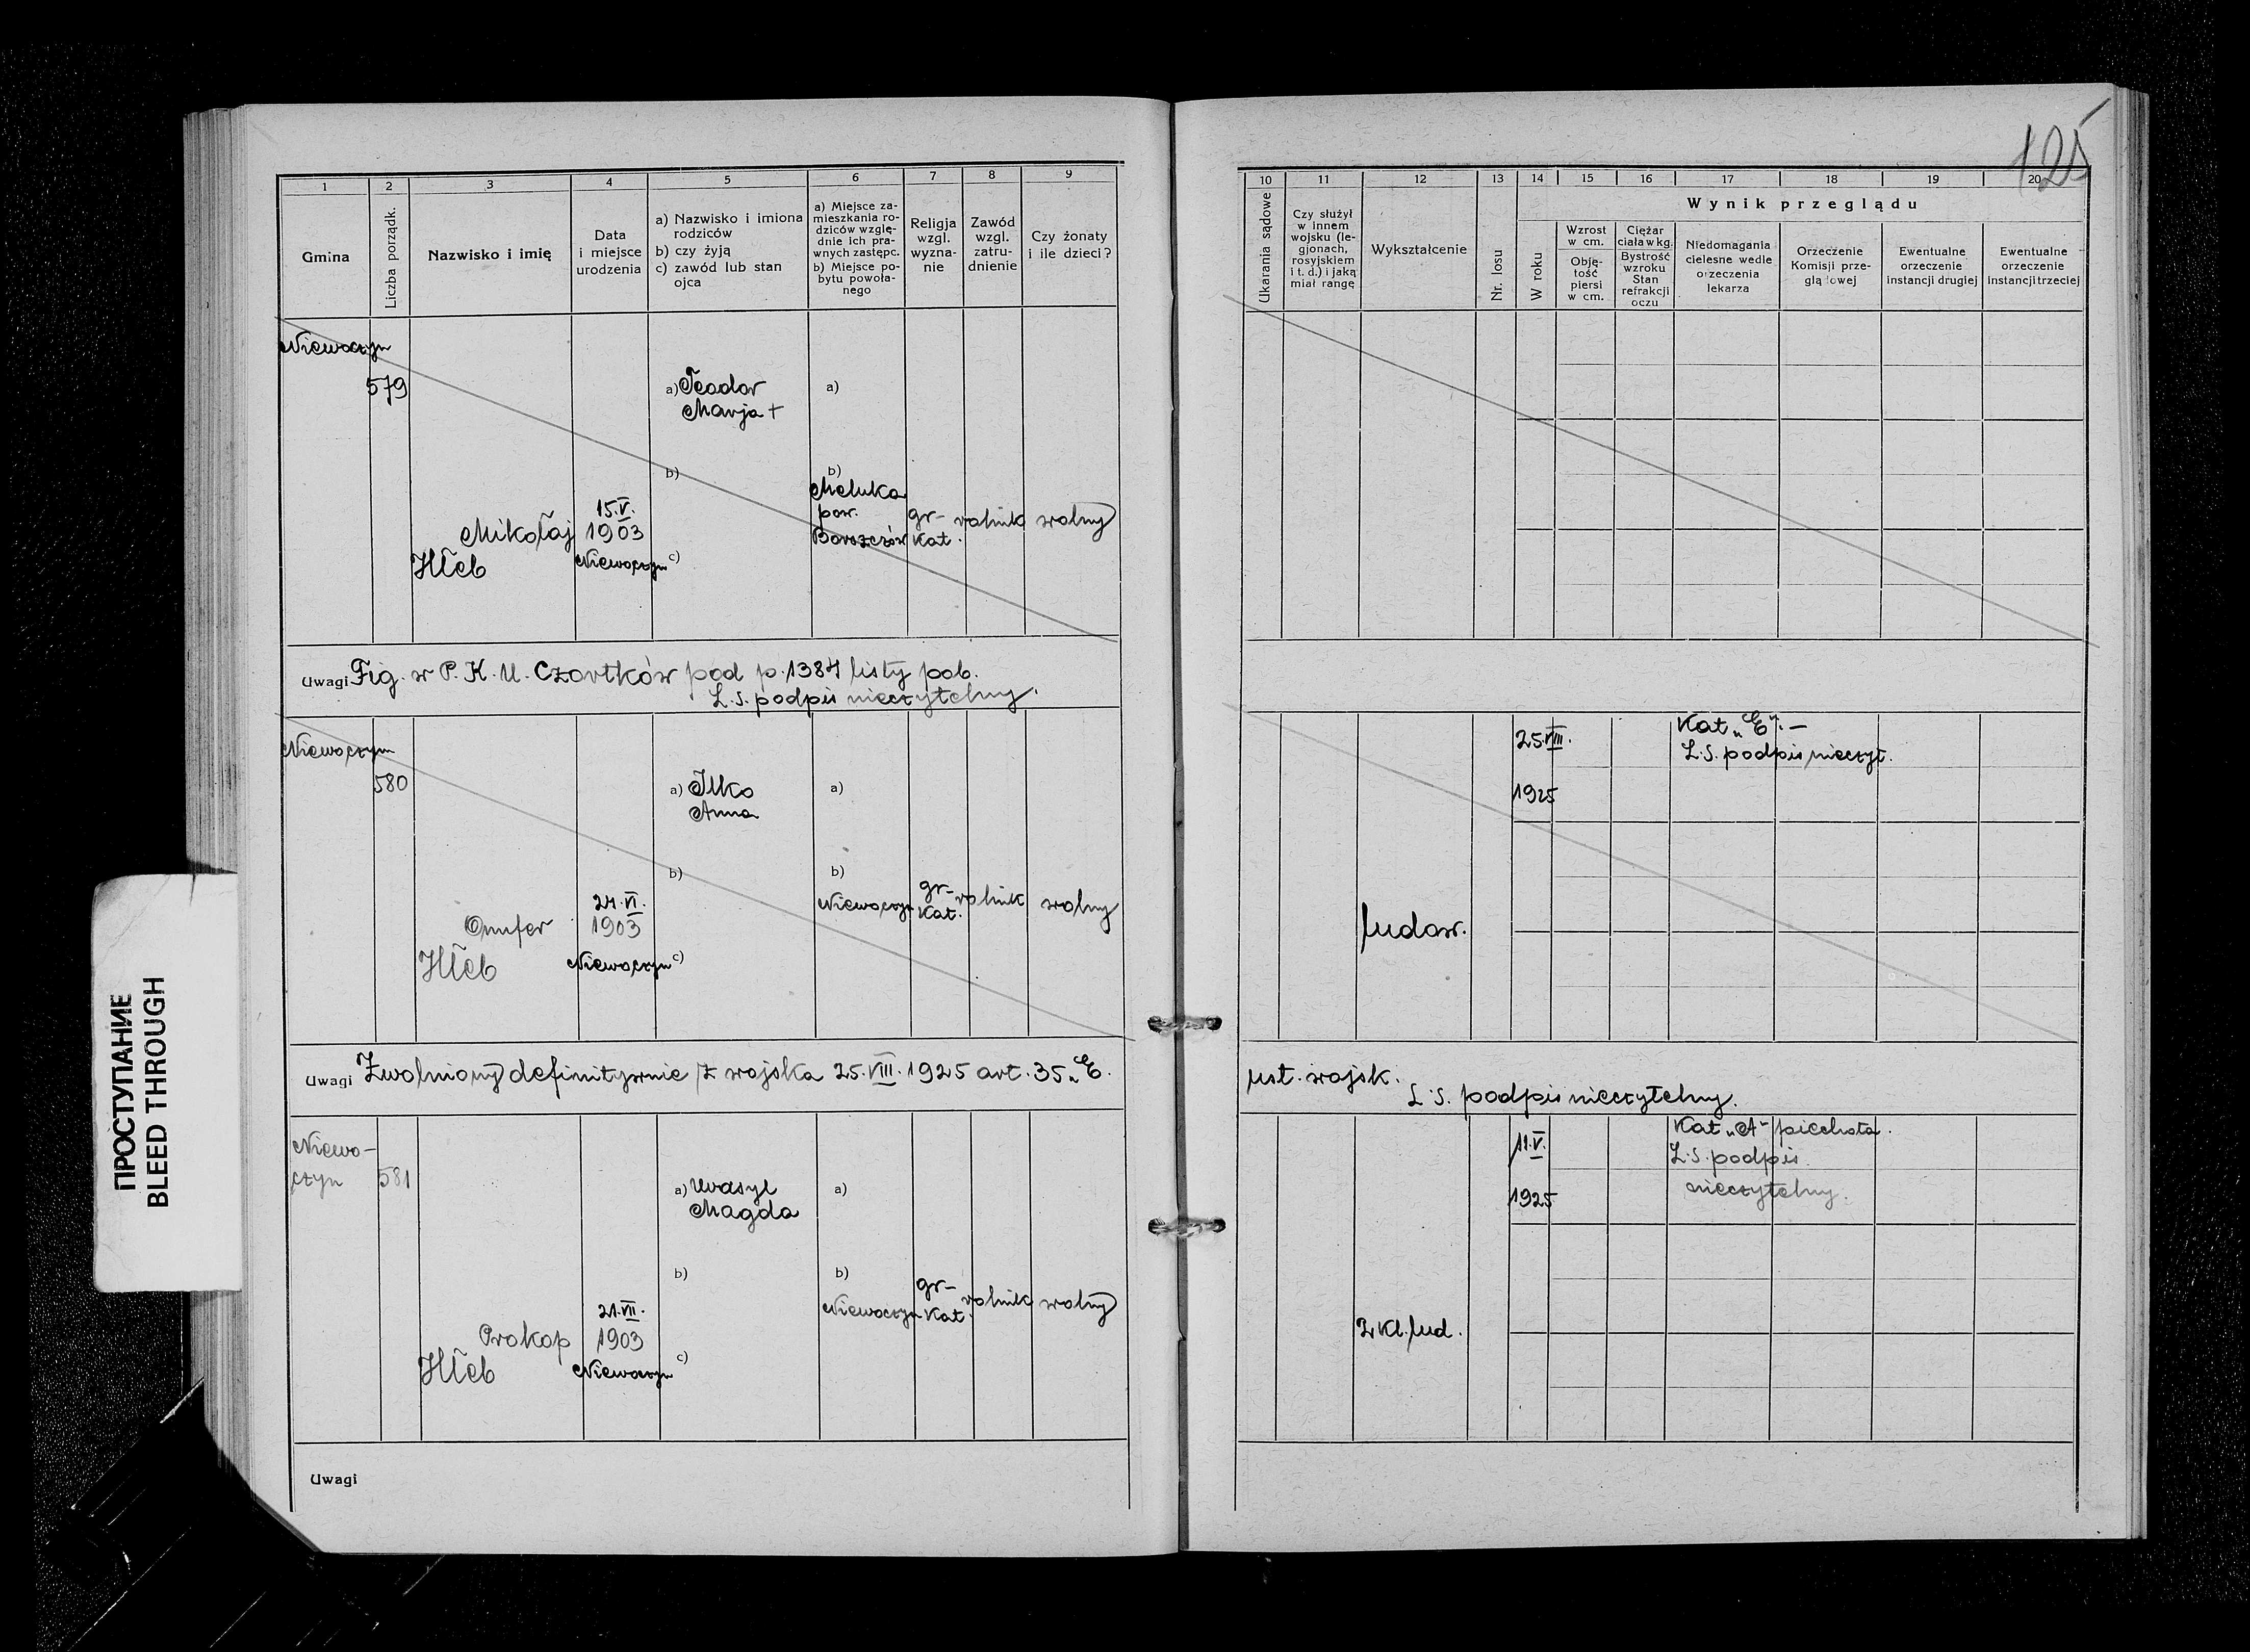 125
1 2 3 4 5 6 7 8 9
Gmina
Liczba porządk.
Nazwisko i imię
Data
i miejsce
urodzenia
a) Nazwisko i imiona
rodziców
b) czy żyją
c) zawód lub stan
ojca
a) Miejsce za-
mieszkania ro-
dziców wzglę-
dnie ich pra-
wnych zastępc.
b) Miejsce po-
bytu powoła-
nego
Religja
wzgl.
wyzna-
nie
Zawód
wzgl.
zatru-
dnienie
Czy żonaty
i ile dzieci?
10 11 12 13 14 15 16 17 18 19 20
Ukarania sądowe
Czy służył
w innem
wojsku (le-
gjonach,
rosyjskiem
i t. d.) i jaką
miał rangę
Wykształcenie
Nr. losu
Wynik przeglądu
W roku
Wzrost
w cm.
Obję-
tość
piersi
w cm.
Ciężar
ciała w kg.
Bystrość
wzroku
Stan
refrakcji
oczu
Niedomagania
cielesne wedle
orzeczenia
lekarza
Orzeczenie
Komisji prze-
glądowej
Ewentualne
orzeczenie
instancji drugiej
Ewentualne
orzeczenie
instancji trzeciej
Niewoczyn
579
a) Teodor
Marja +
a)
b)
b)
Mełuka
pow.
Borszczów
15.V.
1903
Niewoczyn
Mikołaj
Hłeb
c)
gr-
kat.
rolnik
wolny
Uwagi Fig. w P. K. U. Czortków pod p. 1384 listy pob.
L.S. podpis nieczytelny.
Niewoczyn
580
a) Ilko
Anna
a)
b)
b)
Niewoczyn
24.VI.
1903
Niewoczyn
Onufer
Hłeb
c)
gr-
kat.
rolnik
wolny
ludow.
25.VIII.
1925
Kat „E". —
L.S. podpis nieczyt.
Uwagi Zwolniony definitywnie z wojska 25.VIII. 1925 art. 35 „E.
ust. wojsk.
L.S. podpis nieczytelny.
Niewo-
czyn
581
a) Wasyl
Magda
a)
b)
b)
Niewoczyn
21.VII.
1903
Niewoczyn
Prokop
Hłeb
c)
gr-
kat.
rolnik
wolny
2 kl. lud.
11.V.
1925
Kat „A" piechota.
L.S. podpis
nieczytelny.
Uwagi
ПРОСТУПАНИЕ
BLEED THROUGH